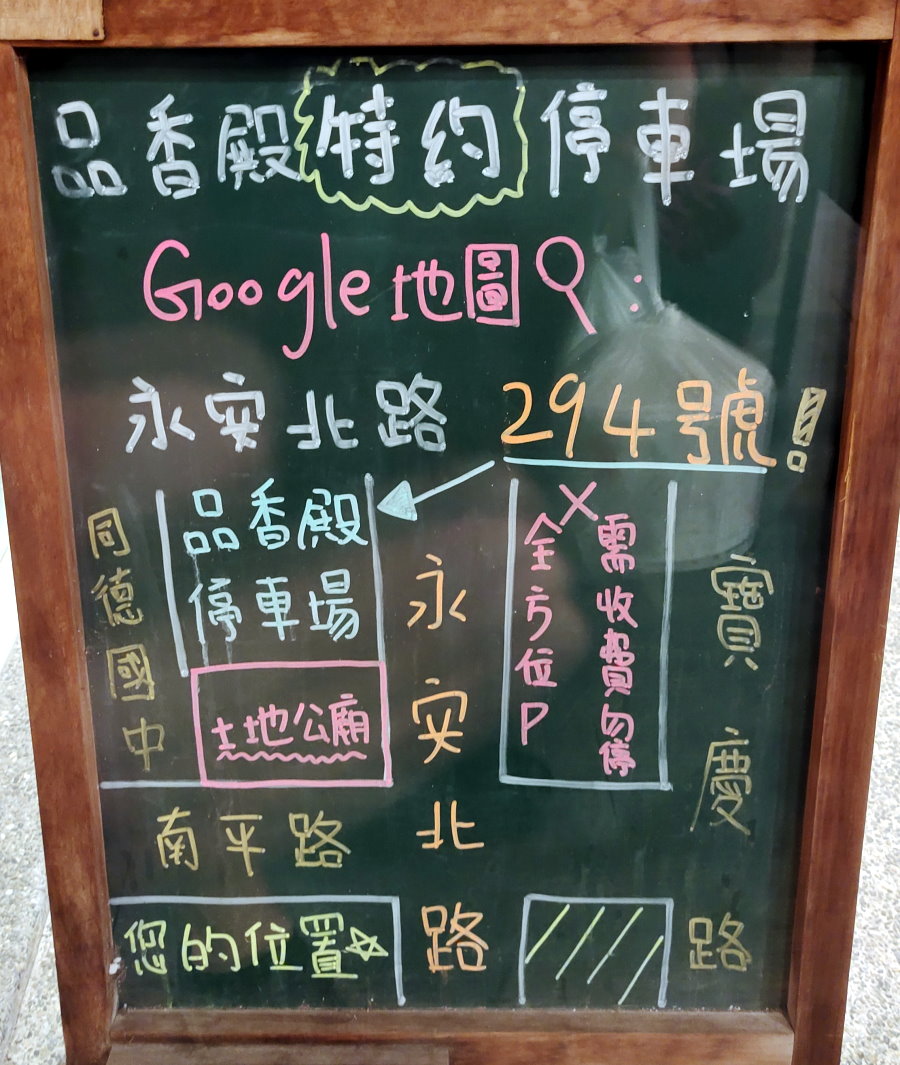 品香殿特約停車場
Google地圖:
永安北路 294號!
品香殿
停車場
土地公廟
同德國中
永安北路
X
需收費勿停
全亏位P
寶慶路
南平路
您的位置☆